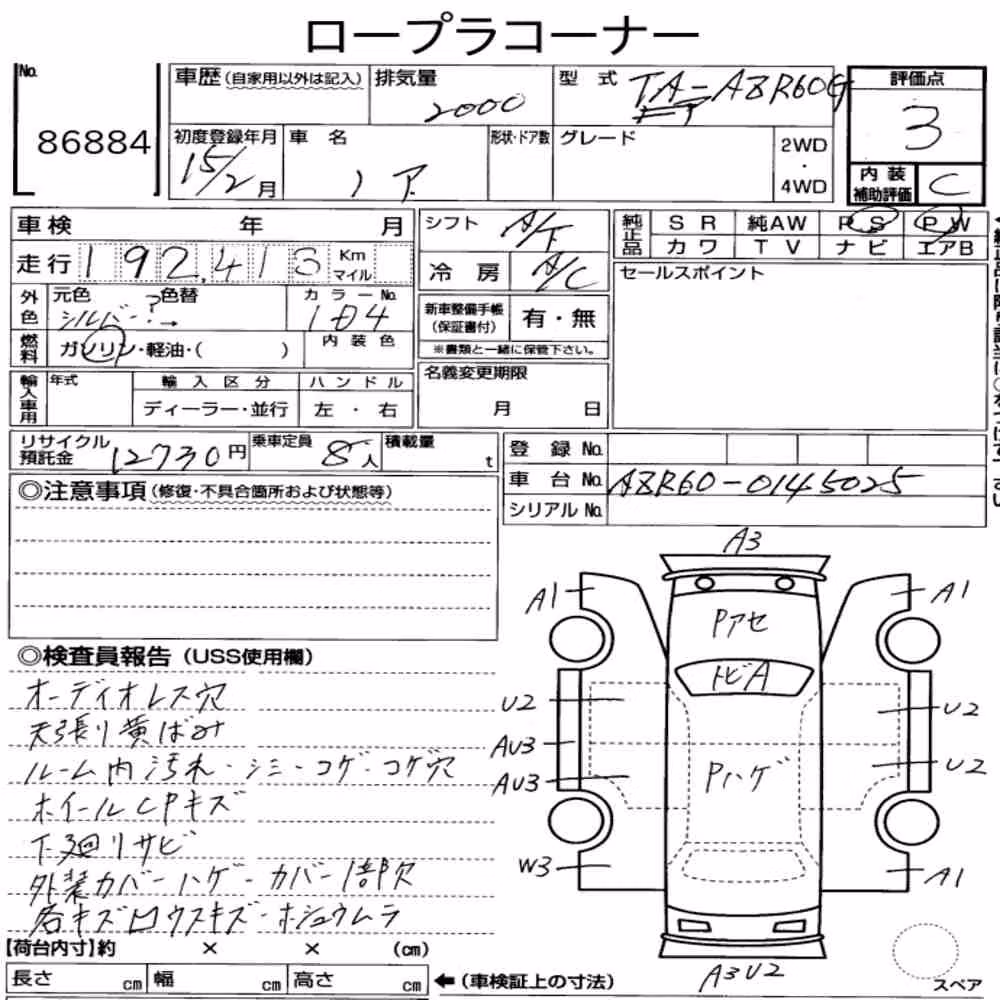 ロープラコーナー
No. 86884
車歴(自家用以外は記入)
排気量 2000
型式 TA-AZR60G
評価点 3
初度登録年月 15/2月
車名 ノア
形状・ドア数
グレード
2WD・4WD
内装補助評価 C
車検 年 月
走行 192,413 Km マイル
シフト A/T
冷房 A/C
純正品 SR 純AW PS PW
カワ TV ナビ エアB
セールスポイント
外色 元色 シルバー? → 色替
カラーNo.
新車整備手帳(保証書付) 有・無
※書類と一緒に保管下さい。
燃料 ガソリン・軽油・( )
内装色
輸入車用 年式 輸入区分 ハンドル
ディーラー・並行 左・右
名義変更期限
月 日
リサイクル預託金 12730円
乗車定員 8人
積載量 t
登録No.
車台No. AZR60-0145025
シリアルNo.
◎注意事項(修復・不具合箇所および状態等)
◎検査員報告(USS使用欄)
オーディオレス穴
天張り黄ばみ
ルーム内汚れ・シミ・コゲ・コゲ穴
ホイールCPキズ
下廻りサビ
外装カバーハゲ・カバー1部欠
各キズ凹ウスキズ・ホシュウムラ
A3
A1 A1
Pアセ
トビA
U2 U2
AU3
Pハゲ
AU3 U2
W3 A1
A3U2
スペア
【荷台内寸】約 × × (cm)
長さ cm 幅 cm 高さ cm
←(車検証上の寸法)